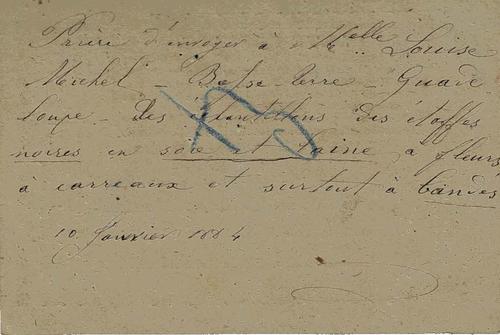 Prière d'envoyer à Melle Louise
Michel - Basse-Terre - Guade
loupe - Des échantillons des étoffes
noires en soie et laine à fleurs
à carreaux et surtout à bandes
10 Janvier 1884